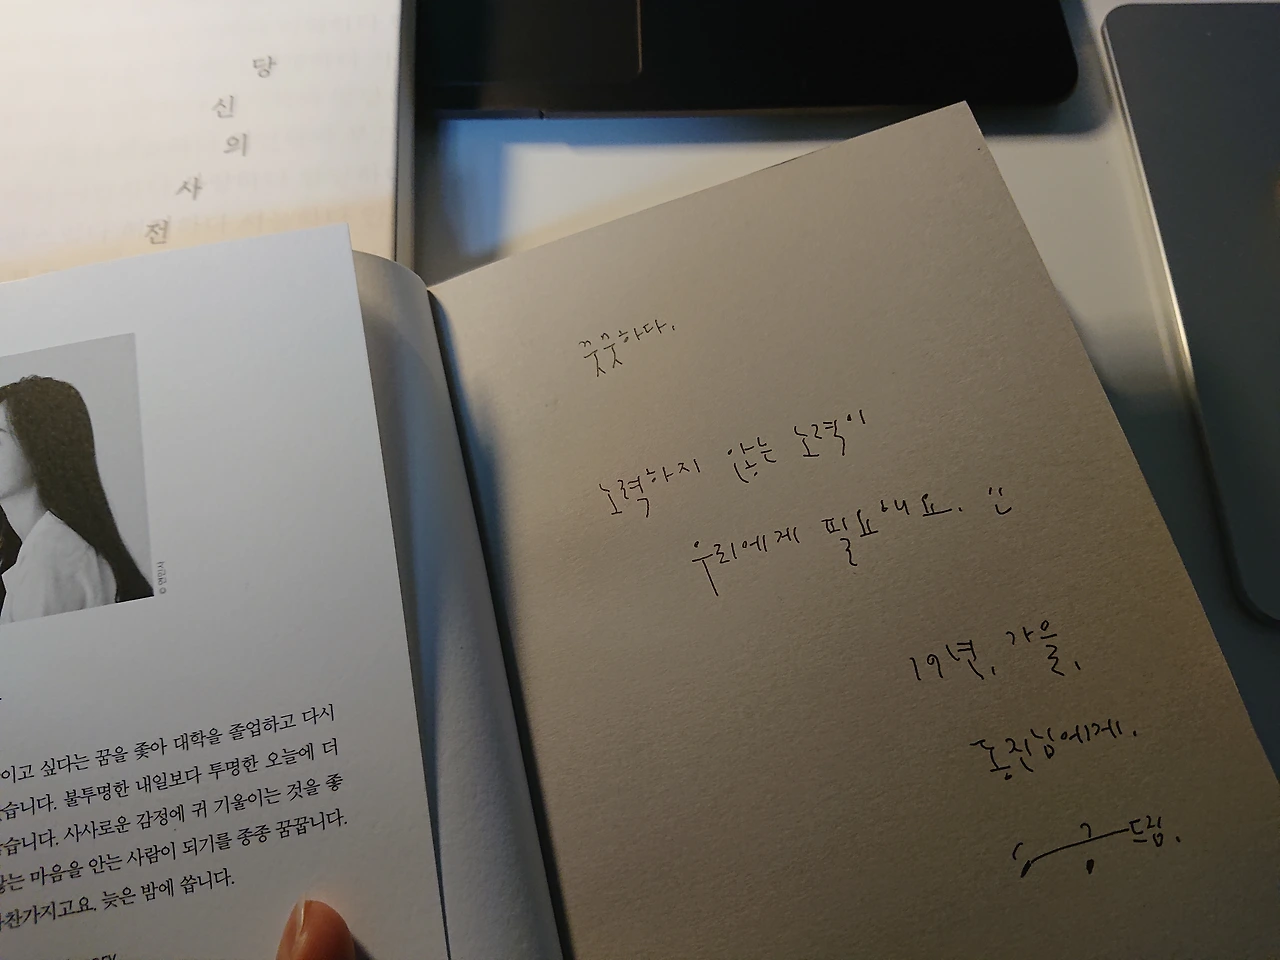 당
신
의
사
전
© 안민서
이고 싶다는 꿈을 좇아 대학을 졸업하고 다시
습니다. 불투명한 내일보다 투명한 오늘에 더
습니다. 사사로운 감정에 귀 기울이는 것을 좋
않는 마음을 안는 사람이 되기를 종종 꿈꿉니다.
찬가지고요, 늦은 밤에 씁니다.
꿋꿋하다.
노력하지 않는 노력이
우리에게 필요해요. :)
19년, 가을,
동진님에게,
드림.